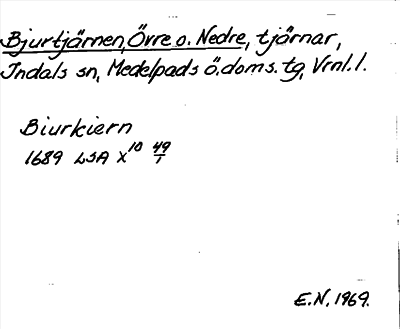 Bjurtjärnen, Övre o. Nedre, tjärnar,
Indals sn, Medelpads ö. doms. tg, Vrnl. l.
Biurkiern
1689 LSA X 10 49/1
E.N. 1969.